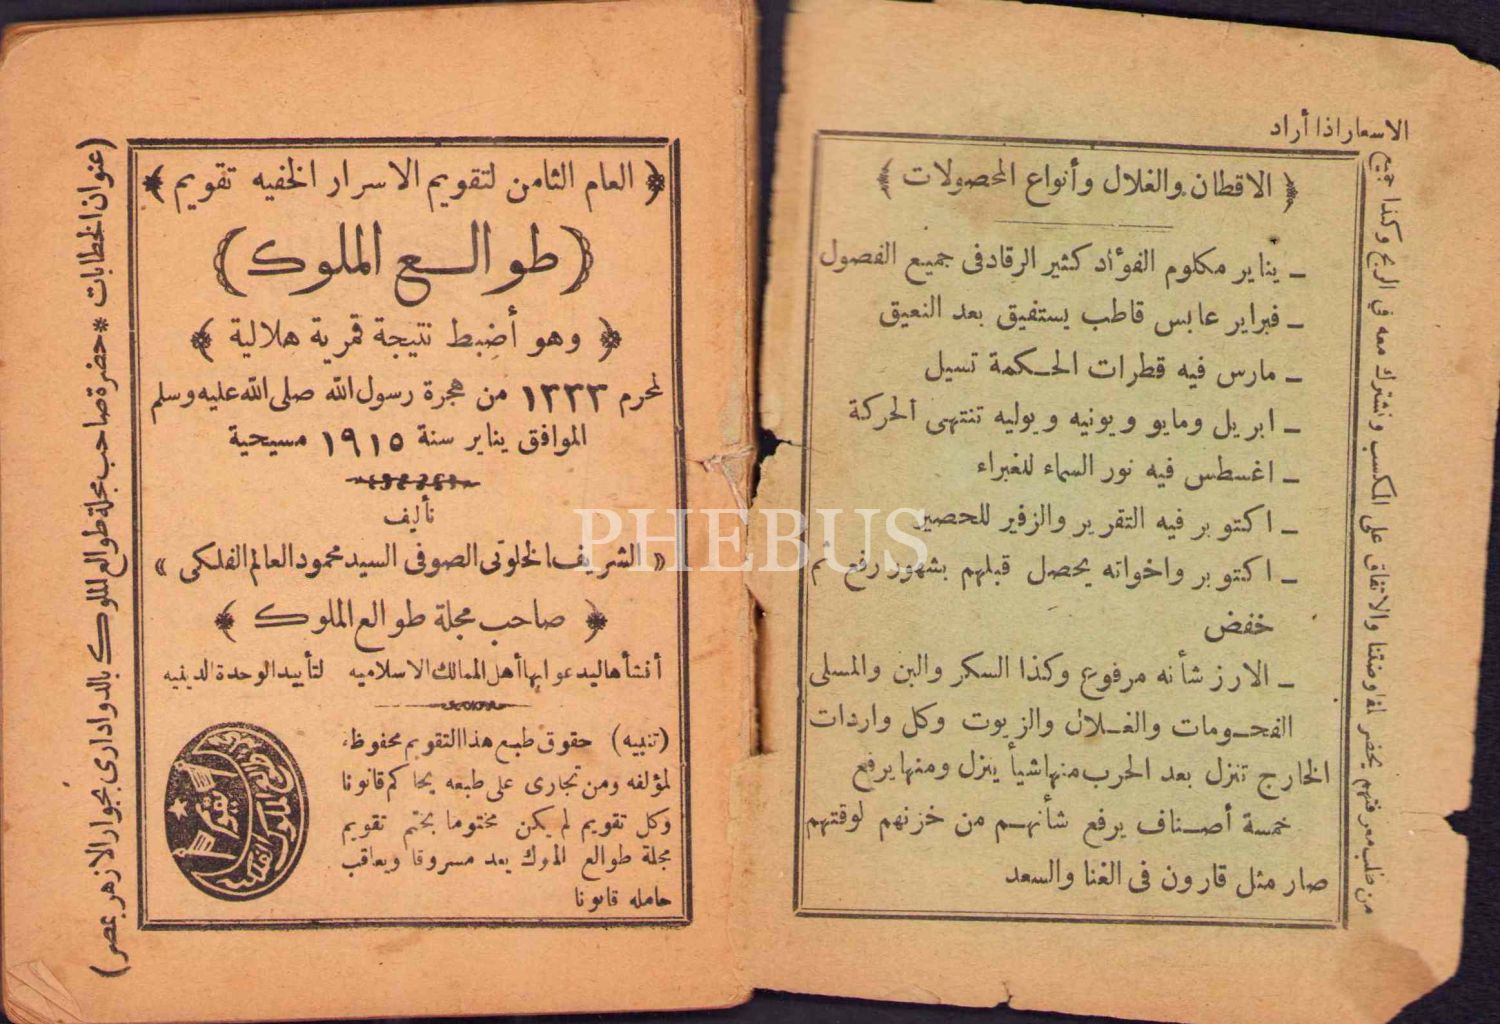 الاسعار اذا أراد
﴿ الاقطان والغلال وأنواع المحصولات ﴾
ـ يناير مكلوم الفؤاد كثير الرقاد فى جميع الفصول
ـ فبراير عابس قاطب يستفيق بعد النعيق
ـ مارس فيه قطرات الحكمة تسيل
ـ ابريل ومايو ويونيه ويوليه تنتهى الحركة
ـ اغسطس فيه نور السماء للغبراء
ـ اكتوبر فيه التقرير والزفير للحصير
ـ اكتوبر واخواته يحصل قبلهم بشهور رفع ثم
خفض
ـ الارز شأنه مرفوع وكذا السكر والبن والمسلى
الفحومات والغلال والزيوت وكل واردات
الخارج تنزل بعد الحرب منها شيأ ينزل ومنها يرفع
خمسة أصناف يرفع شأنهم من خزنهم لوقتهم
صار مثل قارون فى الغنا والسعد
من طلب معرفتهم يحضر لمفاوضتنا والاتفاق على المكسب ونشترك معه في الربح وكذا جميع
﴿ العام الثامن لتقويم الاسرار الخفيه تقويم ﴾
﴿ طوالع الملوك ﴾
﴿ وهو أضبط نتيجة قمرية هلالية ﴾
لمحرم ١٣٣٣ من هجرة رسول الله صلى الله عليه وسلم
الموافق يناير سنة ١٩١٥ مسيحية
تأليف
« الشريف الخلوتى الصوفى السيد محمود العالم الفلكى »
﴿ صاحب مجلة طوالع الملوك ﴾
أنشأها ليدعو ابها أهل الممالك الاسلاميه لتأييد الوحدة الدينيه
(تنبيه) حقوق طبع هذا التقويم محفوظه
لمؤلفه ومن تجارى على طبعه يحاكم قانونا
وكل تقويم لم يكن مختوما بختم تقويم
مجلة طوالع الملوك يعد مسروقا ويعاقب
حامله قانونا
(عنوان الخطابات * حضرة صاحب مجلة طوالع الملوك بالدوادارى بجوار الازهر بمصر)
PHEBUS